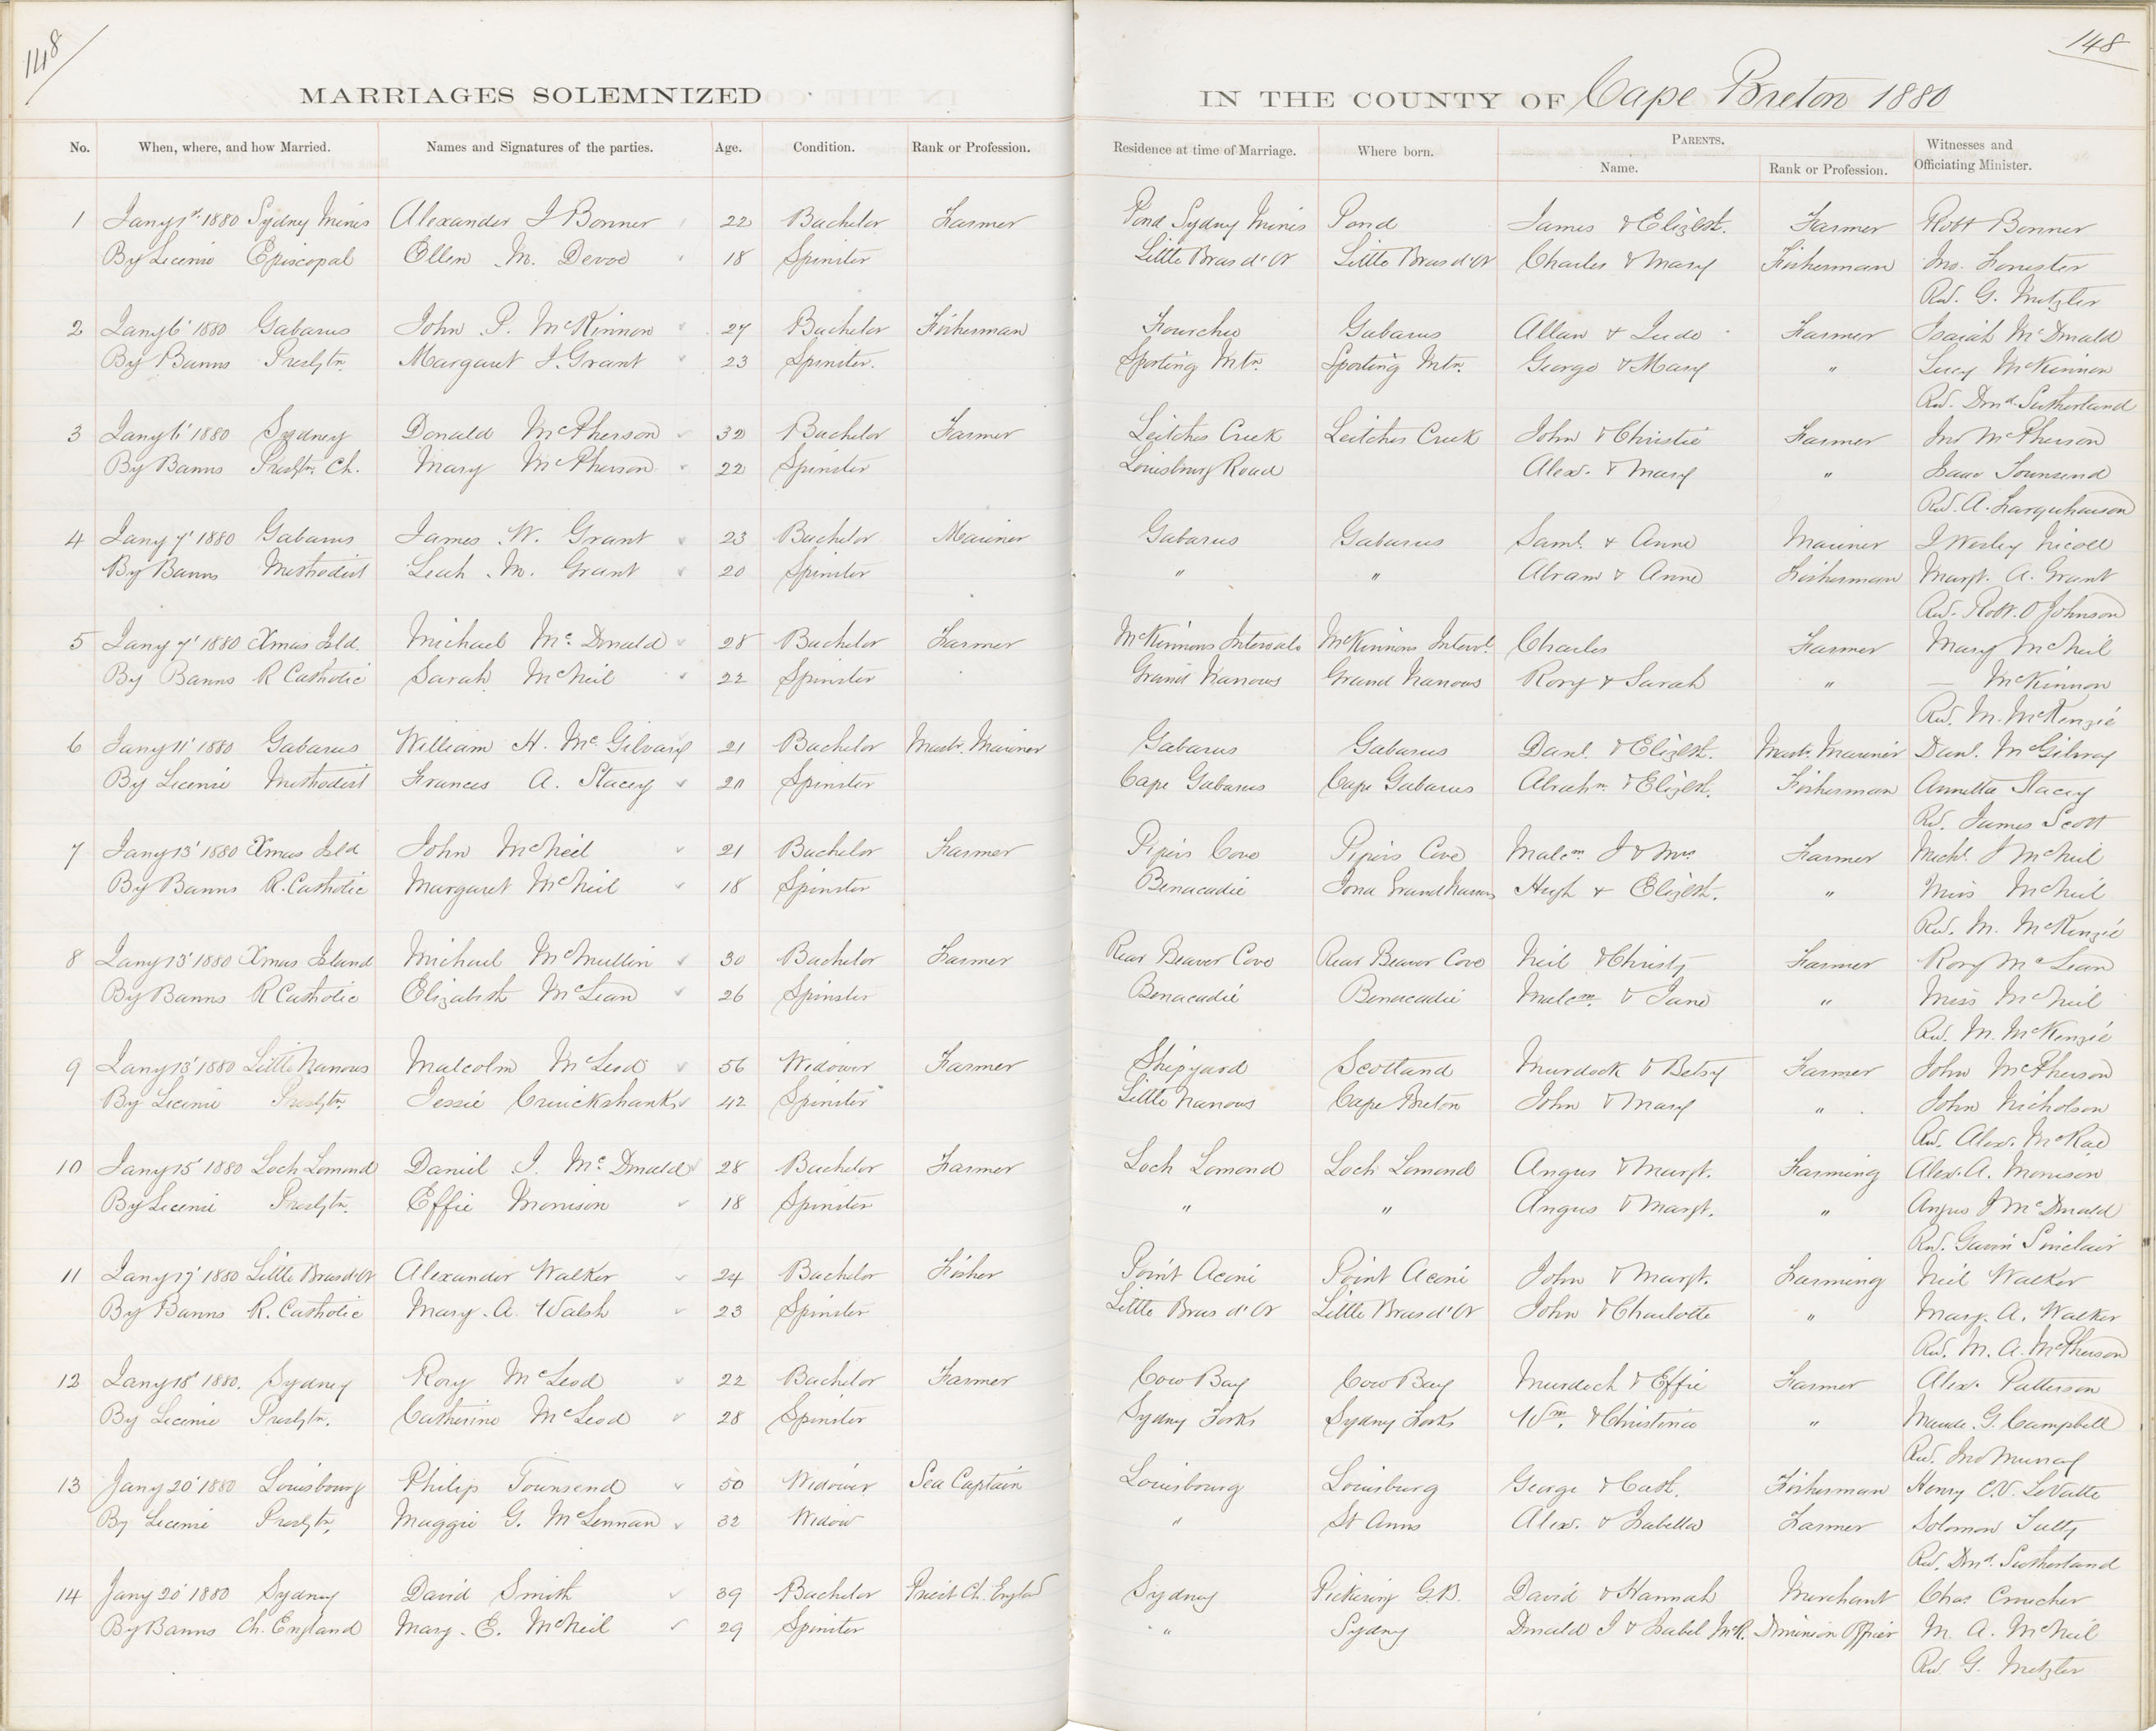 148
148
MARRIAGES SOLEMNIZED IN THE COUNTY OF Cape Breton 1880
No. When, where, and how Married. Names and Signatures of the parties. Age. Condition. Rank or Profession. Residence at time of Marriage. Where born. PARENTS. Name. Rank or Profession. Witnesses and Officiating Minister.
1 Jany 1st 1880 Sydney Mines Alexander J Bonner 22 Bachelor Farmer Pond Sydney Mines Pond James & Elizbth. Farmer Robt Bonner
By License Episcopal Ellen M. Devoe 18 Spinster Little Bras d'Or Little Bras d'Or Charles & Mary Fisherman Jno. Forrester
Rev. G. Metzler
2 Jany 6' 1880 Gabarus John P. McKinnon 27 Bachelor Fisherman Fourchu Gabarus Allan & Jude Farmer Isaiah McDonald
By Banns Presbytn. Margaret J. Grant 23 Spinster. Sporting Mtn. Sporting Mtn. George & Mary " Lucy McKinnon
Rev. Dond. Sutherland
3 Jany 6' 1880 Sydney Donald McPherson 32 Bachelor Farmer Leitches Creek Leitches Creek John & Christie Farmer Jno McPherson
By Banns Presbytn. Ch. Mary McPherson 22 Spinster Louisburg Road Alex. & Mary " Isaac Townsend
Rev. A. Farquharson
4 Jany 7' 1880 Gabarus James W. Grant 23 Bachelor Mariner Gabarus Gabarus Saml. & Anne Mariner J Wesley Nicoll
By Banns Methodist Leah M. Grant 20 Spinster " " Abram & Anne Fisherman Margt. A. Grant
Rev. Robt. O Johnson
5 Jany 7' 1880 Xmas Isld. Michael McDonald 28 Bachelor Farmer McKinnons Intervale McKinnons Intervl. Charles Farmer Mary McNeil
By Banns R Catholic Sarah McNeil 22 Spinster Grand Narrows Grand Narrows Rory & Sarah " — McKinnon
Rev. M. McKenzie
6 Jany 11' 1880 Gabarus William H. McGilvary 21 Bachelor Mastr. Mariner Gabarus Gabarus Danl. & Elizbth. Mastr. Mariner Danl. McGilvray
By License Methodist Frances A. Stacey 20 Spinster Cape Gabarus Cape Gabarus Abrahm. & Elizbth. Fisherman Annetta Stacey
Rev. James Scott
7 Jany 13' 1880 Xmas Isld John McNeil 21 Bachelor Farmer Pipers Cove Pipers Cove Malcm. J & Mrs Farmer Michl. J McNeil
By Banns R. Catholic Margaret McNeil 18 Spinster Benacadie Iona Grand Narrows Hugh & Elizbth. " Miss McNeil
Rev. M. McKenzie
8 Jany 13' 1880 Xmas Island Michael McMullin 30 Bachelor Farmer Rear Beaver Cove Rear Beaver Cove Neil & Christy Farmer Rory McLean
By Banns R Catholic Elizabeth McLean 26 Spinster Benacadie Benacadie Malcm. & Jane " Miss McNeil
Rev. M. McKenzie
9 Jany 13' 1880 Little Narrows Malcolm McLeod 56 Widower Farmer Shipyard Scotland Murdock & Betsy Farmer John McPherson
By License Presbytn. Jessie Cruickshanks 42 Spinster Little Narrows Cape Breton John & Mary " John Nicholson
Rev. Alex. McRae
10 Jany 15' 1880 Loch Lomond Daniel J. McDonald 28 Bachelor Farmer Loch Lomond Loch Lomond Angus & Margt. Farming Alex. A. Morrison
By License Presbytn. Effie Morrison 18 Spinster " " Angus & Margt. " Angus J McDonald
Rev. Gavin Sinclair
11 Jany 17' 1880 Little Bras d'Or Alexander Walker 24 Bachelor Fisher Point Aconi Point Aconi John & Margt. Farming Neil Walker
By Banns R. Catholic Mary. A. Walsh 23 Spinster Little Bras d'Or Little Bras d'Or John & Charlotte " Mary. A. Walker
Rev. M. A. McPherson
12 Jany 18' 1880. Sydney Rory McLeod 22 Bachelor Farmer Cow Bay Cow Bay Murdoch & Effie Farmer Alex. Patterson
By License Presbytn. Catherine McLeod 28 Spinster Sydney Forks Sydney Forks Wm. & Christina " Maude. G. Campbell
Rev. Jno Murray
13 Jany 20' 1880 Louisbourg Philip Townsend 50 Widower Sea Captain Louisbourg Louisburg George & Cath. Fisherman Henry C.V. LeVatte
By License Presbytn. Maggie G. McLennan 32 Widow " St Anns Alex. & Isabella Farmer Solomon Tutty
Rev. Dond. Sutherland
14 Jany 20' 1880 Sydney David Smith 39 Bachelor Priest Ch. England Sydney Pickering G.B. David & Hannah Merchant Chas Crucher
By Banns Ch. England Mary. E. McNeil 29 Spinster " Sydney Donald J & Isabel McN. Dominion Officer M. A. McNeil
Rev G. Metzler